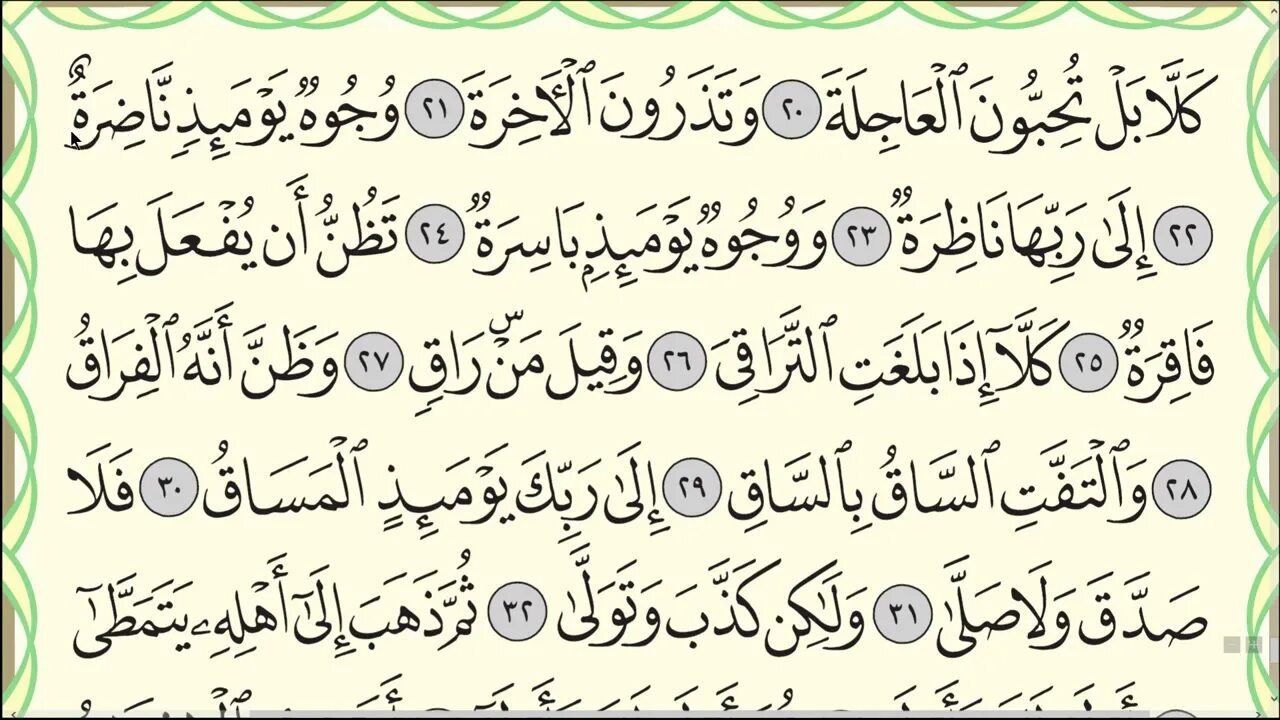 كَلَّا بَلْ تُحِبُّونَ ٱلْعَاجِلَةَ ٢٠ وَتَذَرُونَ ٱلْأَخِرَةَ ٢١ وُجُوهٌ يَوْمَئِذٍ نَّاضِرَةٌ
٢٢ إِلَىٰ رَبِّهَا نَاظِرَةٌ ٢٣ وَوُجُوهٌ يَوْمَئِذِۭ بَاسِرَةٌ ٢٤ تَظُنُّ أَن يُفْعَلَ بِهَا
فَاقِرَةٌ ٢٥ كَلَّآ إِذَا بَلَغَتِ ٱلتَّرَاقِىَ ٢٦ وَقِيلَ مَنْۜ رَاقٍ ٢٧ وَظَنَّ أَنَّهُ ٱلْفِرَاقُ
٢٨ وَٱلْتَفَّتِ ٱلسَّاقُ بِٱلسَّاقِ ٢٩ إِلَىٰ رَبِّكَ يَوْمَئِذٍ ٱلْمَسَاقُ ٣٠ فَلَا
صَدَّقَ وَلَا صَلَّىٰ ٣١ وَلَٰكِن كَذَّبَ وَتَوَلَّىٰ ٣٢ ثُمَّ ذَهَبَ إِلَىٰٓ أَهْلِهِۦ يَتَمَطَّىٰٓ